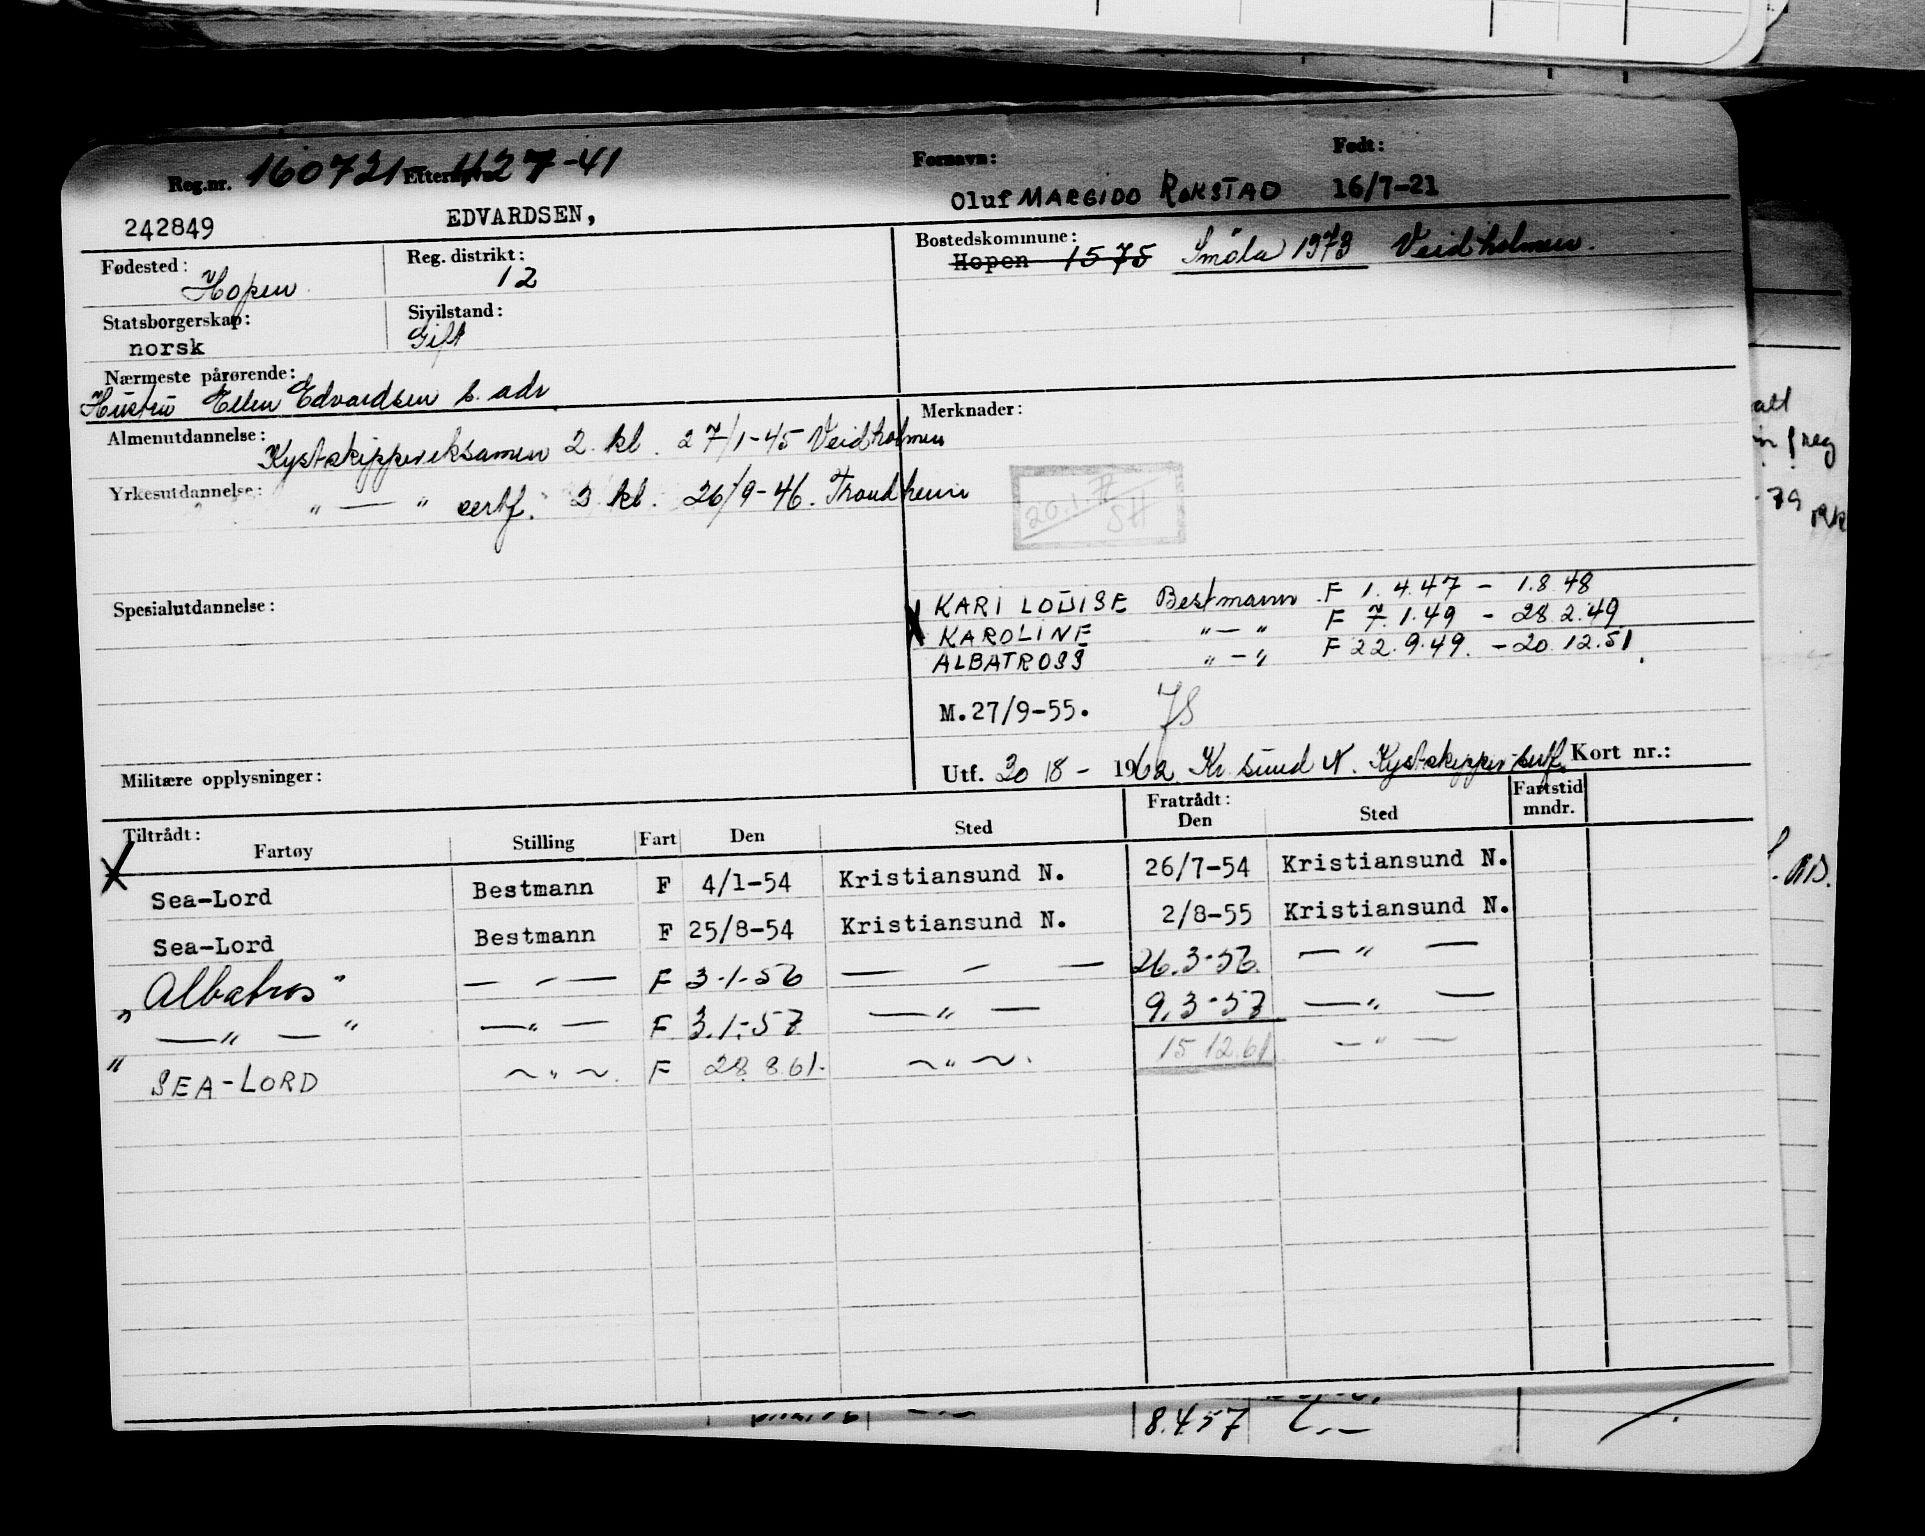 Reg.nr. 160721 Etternavn: 41127-41 Fornavn: Født:
242849 EDVARDSEN, Oluf MARGIDO ROKSTAD 16/7-21
Fødested: Hopen Reg. distrikt: 12 Bostedskommune: Hopen 1575 Smöla 1973 Veidholmen.
Statsborgerskap: norsk Sivilstand: Gift
Nærmeste pårørende:
Hustru Ellen Edvardsen s. adr.
Almenutdannelse: Kystskippereksamen 2. kl. 27/1-45 Veidholmen
Yrkesutdannelse: " — " certf. 2 kl. 26/9-46. Trondheim
Spesialutdannelse:
Militære opplysninger:
Merknader:
20.1.
SH
KARI LOUISE Bestmann F 1.4.47 - 1.8.48
X KAROLINE " — " F 7.1.49 - 28.2.49
ALBATROSS " — " F 22.9.49. - 20.12.51.
M.27/9-55.
Utf. 30/8 - 1962 Kr.sund N. Kystskipper sertf. Kort nr.:
Tiltrådt: Fratrådt: Fartstid
Fartøy Stilling Fart Den Sted Den Sted mndr.
X Sea-Lord Bestmann F 4/1-54 Kristiansund N. 26/7-54 Kristiansund N.
Sea-Lord Bestmann F 25/8-54 Kristiansund N. 2/8-55 Kristiansund N.
" Albatros " — " — F 3-1-56 — " — 26.3-56. — " —
— " — " — " — F 3.1.-57 — " — 9.3-57 — " —
" SEA-LORD ~ " ~. F 28.8.61. ~ " ~. 15.12.61 — " —
8.457